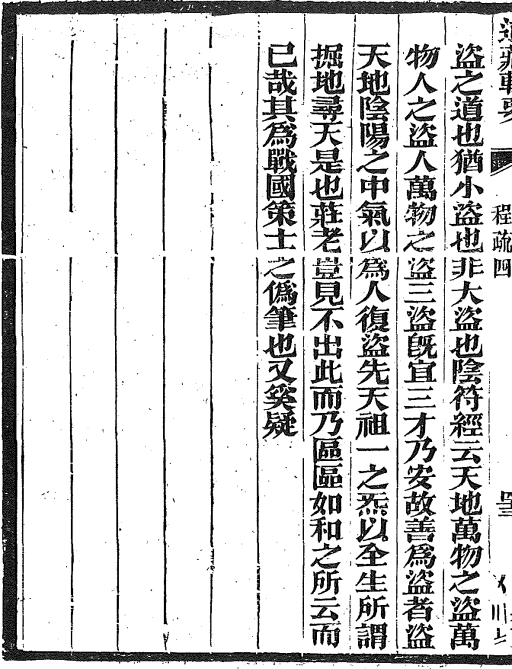 盜之道也猶小盜也非大盜也陰符經云天地萬物之盜萬
物人之盜人萬物之盜三盜旣宜三才乃安故善爲盜者盜
天地陰陽之中氣以爲人復盜先天祖一之炁以全生所謂
掘地尋天是也莊老豈見不出此而乃區區如和之所云而
已哉其爲戰國策士之僞筆也又奚疑
程疏四